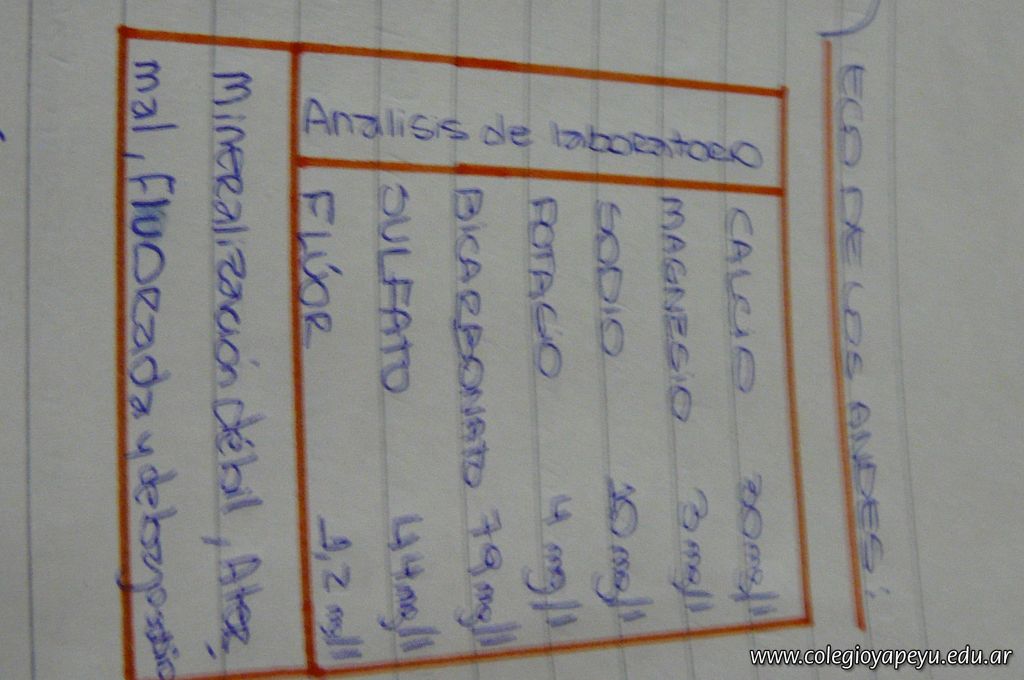 ECO DE LOS ANDES:
Analisis de laboratorio
CALCIO 30 mg/l
MAGNESIO 3 mg/l
SODIO 10 mg/l
POTACIO 4 mg/l
BICARBONATO 79 mg/l
SULFATO 44 mg/l
FLÚOR 1,2 mg/l
Mineralización débil,
mal, Fluorada y de bajo sodio
www.colegioyapeyu.edu.ar